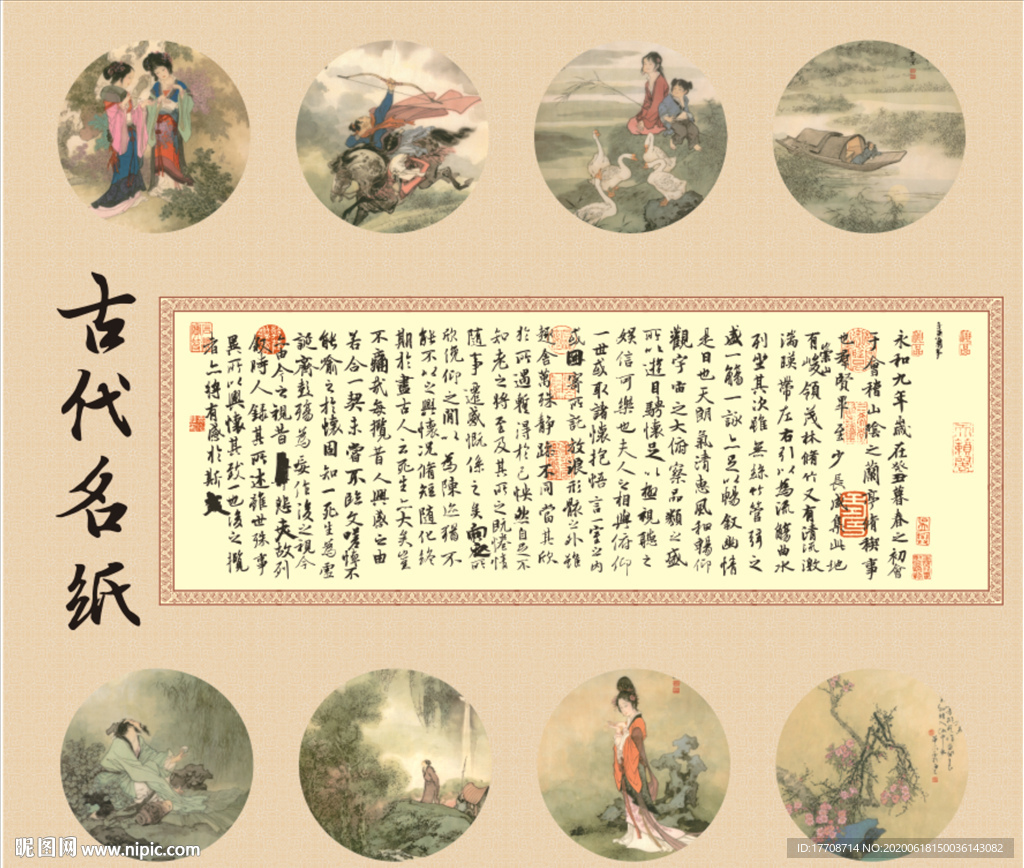 古代名紙
永和九年歲在癸丑暮春之初會
于會稽山陰之蘭亭脩稧事
也羣賢畢至少長咸集此地
有崇山峻領茂林脩竹又有清流激
湍暎帶左右引以為流觴曲水
列坐其次雖無絲竹管弦之
盛一觴一詠亦足以暢敘幽情
是日也天朗氣清惠風和暢仰
觀宇宙之大俯察品類之盛
所以遊目騁懷足以極視聽之
娛信可樂也夫人之相與俯仰
一世或取諸懷抱悟言一室之內
或因寄所託放浪形骸之外雖
趣舍萬殊靜躁不同當其欣
於所遇暫得於己怏然自足不
知老之將至及其所之既惓情
隨事遷感慨係之矣向之所
欣俛仰之閒以為陳迹猶不
能不以之興懷況脩短隨化終
期於盡古人云死生亦大矣豈
不痛哉每攬昔人興感之由
若合一契未嘗不臨文嗟悼不
能喻之於懷固知一死生為虛
誕齊彭殤為妄作後之視今
亦由今之視昔悲夫故列
敘時人錄其所述雖世殊事
異所以興懷其致一也後之攬
者亦將有感於斯文
昵图网 www.nipic.com
ID:17708714 NO:20200618150036143082